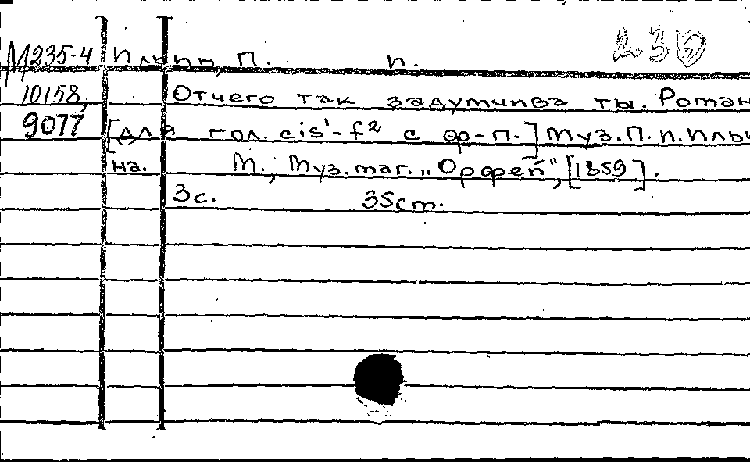 М235-4 Ильин, П. И. 230
10158, Отчего так задумчива ты. Роман
9077 [для гол. cis¹-f² с ф-п.] Муз. П. И. Ильи
на. М., Муз. маг. „Орфей", [1859].
3 с. 35 cm.